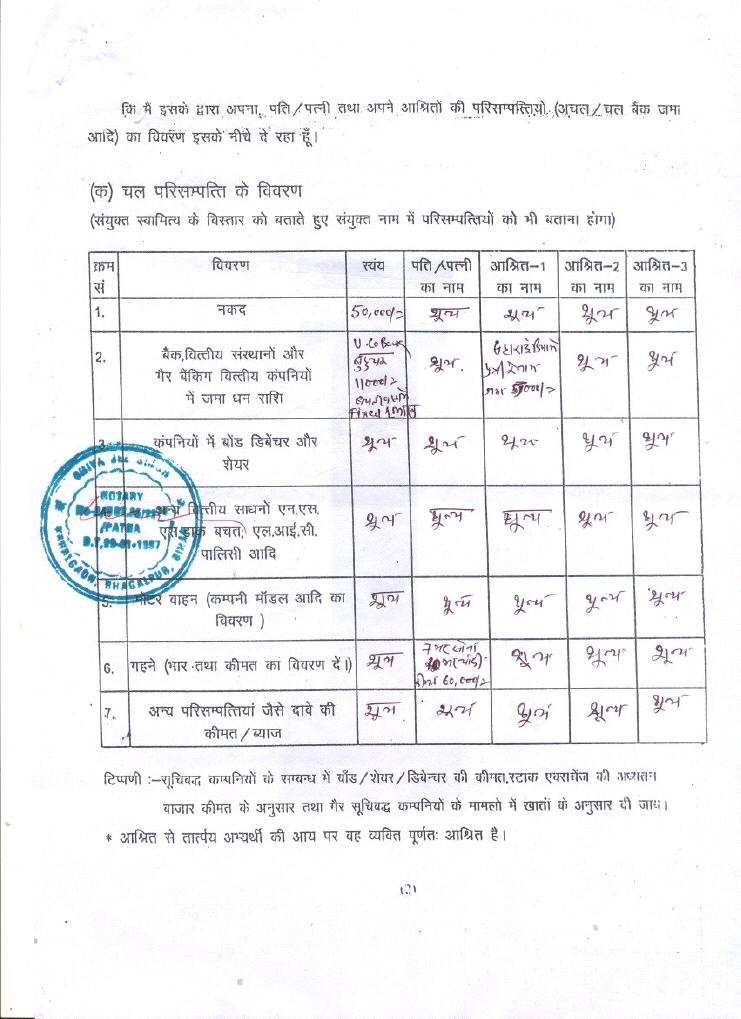 कि मैं इसके द्वारा अपना, पति/पत्नी तथा अपने आश्रितों की परिसम्पत्तियों (अचल/चल बैंक जमा
आदि) का विवरण इसके नीचे दे रहा हूँ।
(क) चल परिसम्पत्ति के विवरण
(संयुक्त स्वामित्व के विस्तार को बताते हुए संयुक्त नाम में परिसम्पत्तियों को भी बताना होगा)
क्रम सं विवरण स्वंय पति/पत्नी का नाम आश्रित-1 का नाम आश्रित-2 का नाम आश्रित-3 का नाम
1. नकद 50,000/= शून्य शून्य शून्य शून्य
2. बैंक,वित्तीय संस्थानों और गैर बैंकिग वित्तीय कंपनियों में जमा धन राशि U.Co Bank 11000/= शून्य शून्य शून्य
3. कंपनियों में बोंड डिबेंचर और शेयर शून्य शून्य शून्य शून्य शून्य
अन्य वित्तीय साधनों एन.एस. एस.डाक बचत, एल.आई.सी. पालिसी आदि शून्य शून्य शून्य शून्य शून्य
5. मोटर वाहन (कम्पनी मॉडल आदि का विवरण ) शून्य शून्य शून्य शून्य शून्य
6. गहने (भार तथा कीमत का विवरण दें।) शून्य 60,000/= शून्य शून्य शून्य
7. अन्य परिसम्पत्तियां जैसे दावे की कीमत/ब्याज शून्य शून्य शून्य शून्य शून्य
NOTARY
PATNA
KAHALGAON, BHAGALPUR, BIHAR
टिप्पणी :-सूचिबद्ध कम्पनियों के सम्बन्ध में बाँड/शेयर/डिबेन्चर की कीमत,स्टाक एक्सचेंज की अध्यतन
बाजार कीमत के अनुसार तथा गैर सूचिबद्ध कम्पनियों के मामलो में खातों के अनुसार दी जाय।
* आश्रित से तार्त्पय अभ्यर्थी की आय पर वह व्यक्ति पूर्णतः आश्रित है।
(2)